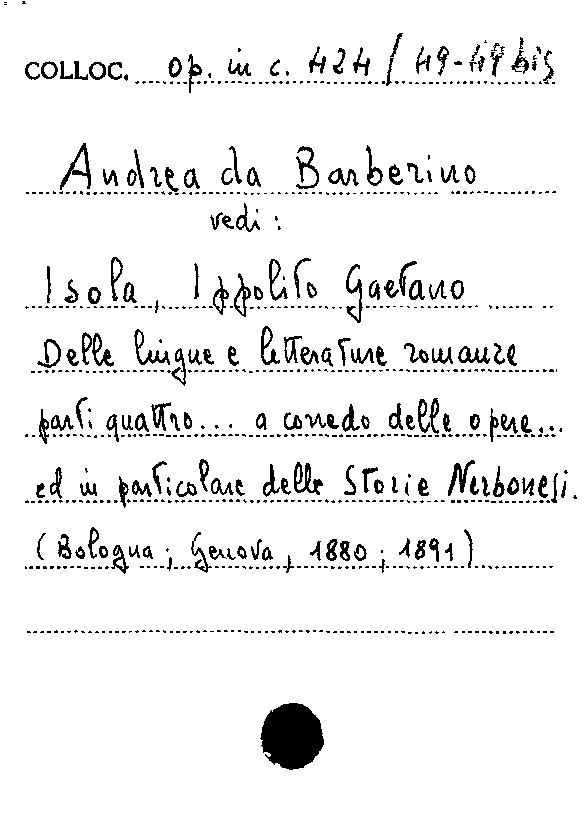 COLLOC. op. in c. 424 / 49-49 bis
Andrea da Barberino
vedi :
Isola, Ippolito Gaetano
Delle lingue e letterature romanze
parti quattro... a corredo delle opere...
ed in particolare delle Storie Nerbonesi.
(Bologna ; Genova, 1880 ; 1891)